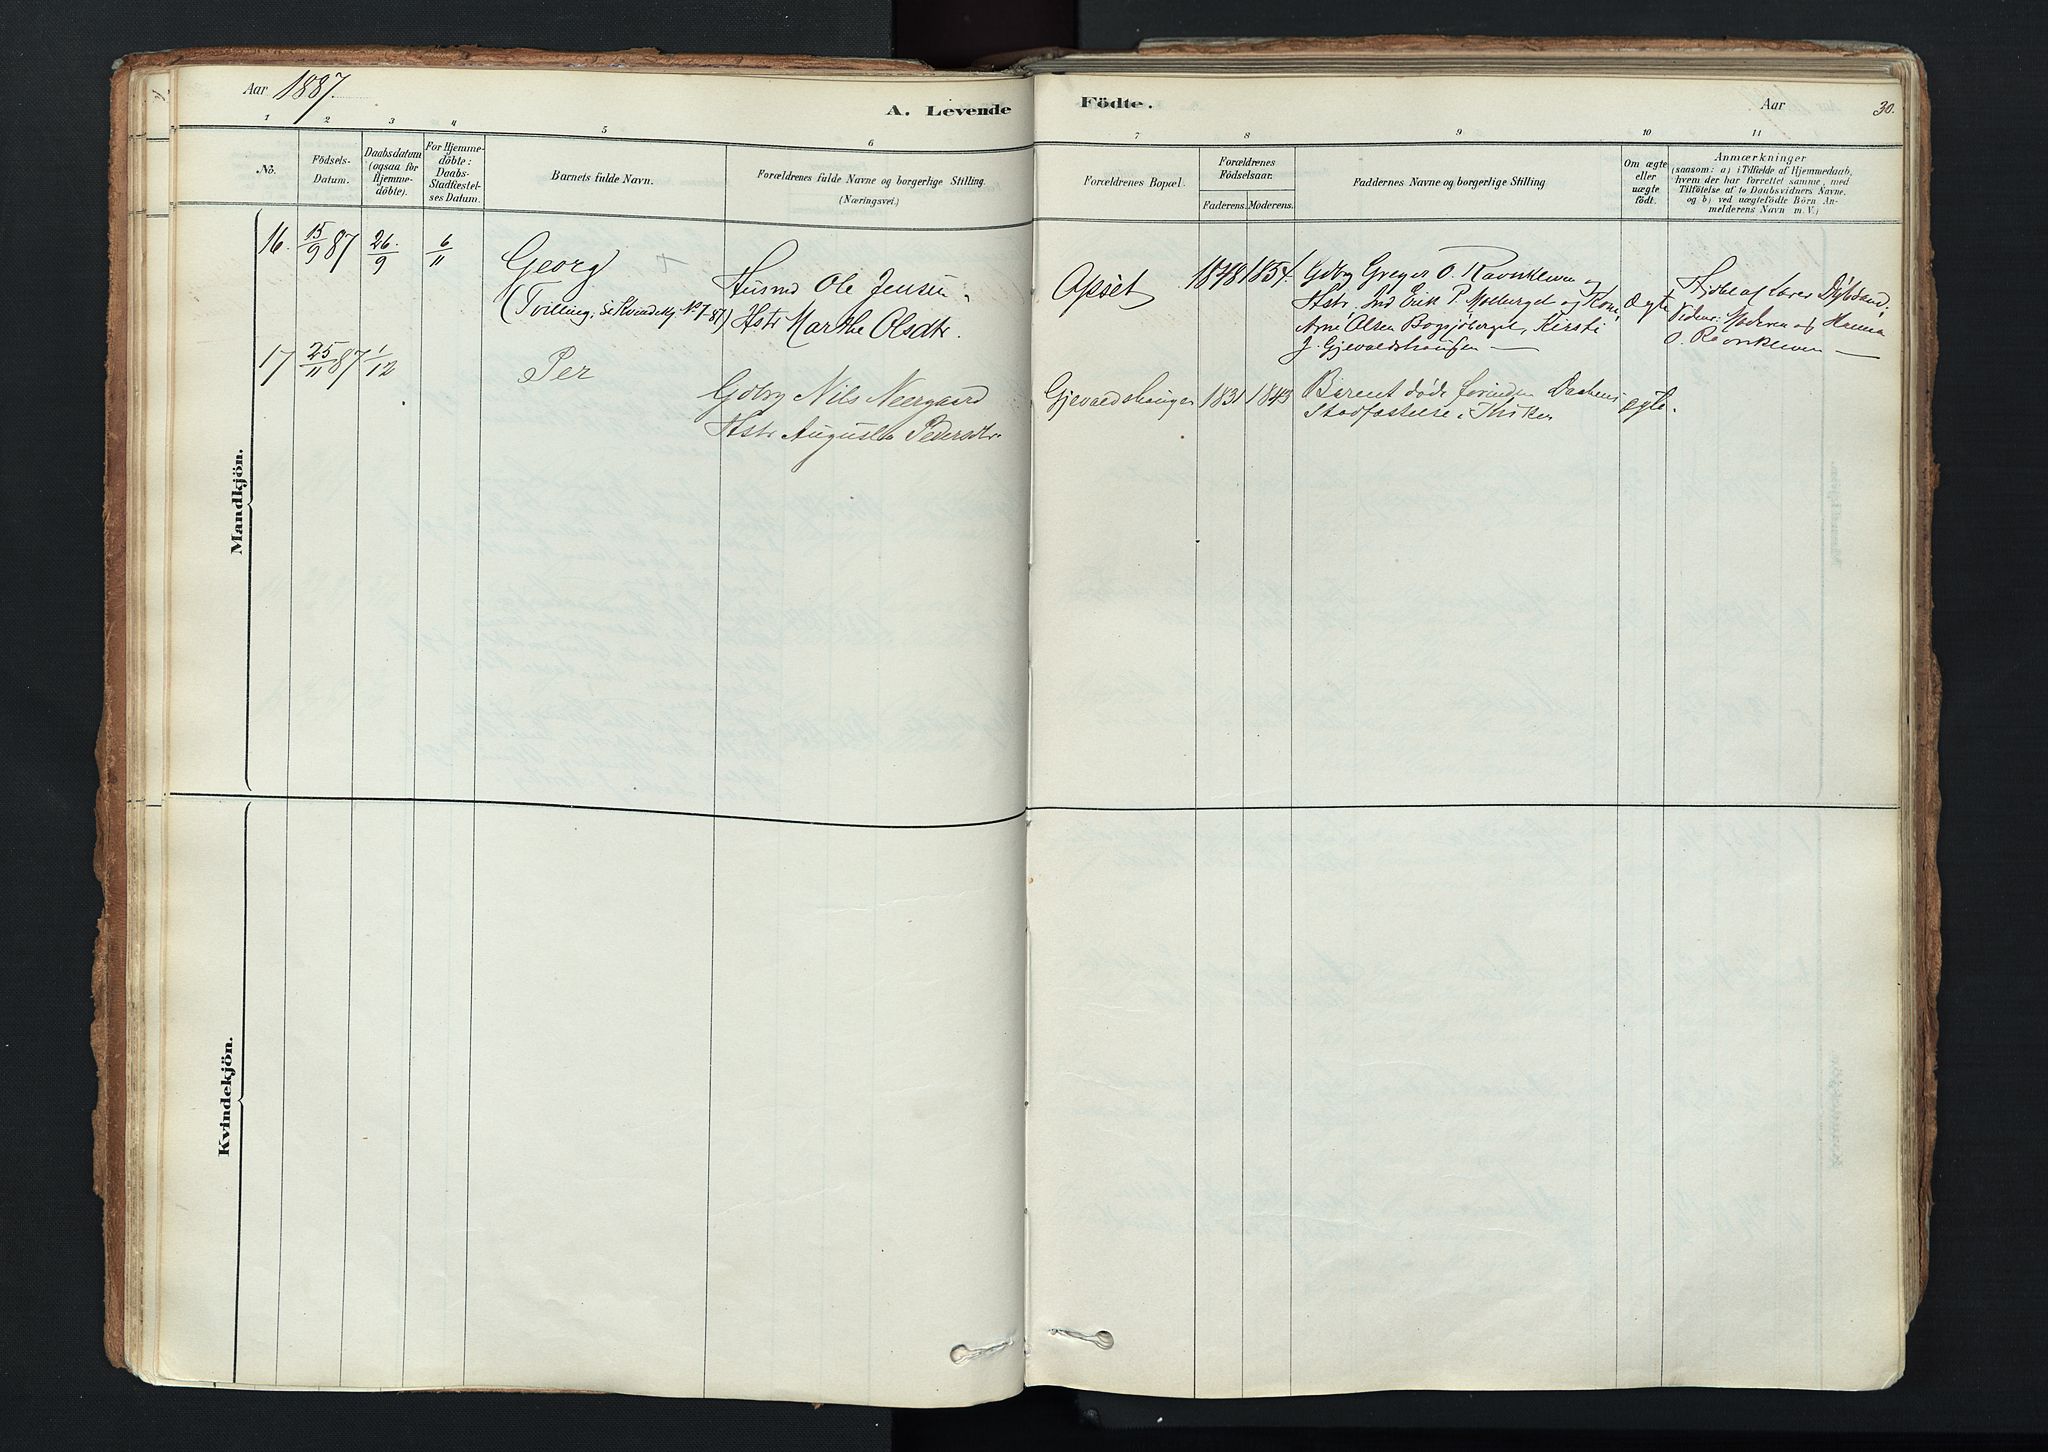 Aar 1887.
A. Levende Födte.
Aar
30.
1 2 3 4 5 6 7 8 9 10 11
No.
Födsels-
Datum.
Daabsdatum
(ogsaa for
Hjemme-
döbte).
For Hjemme-
döbte:
Daabs-
Stadfæstel-
ses Datum.
Barnets fulde Navn.
Forældrenes fulde Navne og borgerlige Stilling.
(Næringsvei.)
Forældrenes Bopæl.
Forældrenes
Födselsaar.
Faderens. Moderens.
Faddernes Navne og borgerlige Stilling
Om ægte
eller
uægte
födt.
Anmærkninger
(saasom: a) i Tilfælde af Hjemmedaab,
hvem der har forrettet samme, med
Tilföielse af to Daabsvidners Navne.
og b) ved uægtefödte Börn An-
melderens Navn m. V.)
Mandkjön.
16. 15/9 87 26/9 6/11
Georg
(Tvilling, se Kvindekj No 7-87)
Husmd Ole Jensen
Hstr Marthe Olsdtr.
Opset
1848 1854.
Gdbr Greger O. Ravnkleven og
Hstr. Ind Erik P. Moberget og Kone
Arne Olsen Bogsjöberget, Kirsti
J. Gjevaldshaugen
Ægte
Hjdbt af Lærer Dybdand,
Vidner: Moderen og Hanna
O. Ravnkleven
17 25/11 87 1/12
Per
Gdbr Nils Neergaard
Hstr Augusta Pedersdtr.
Gjevaldshaugen
1831 1843
Barnet døde forinden Daabens
Stadfæstelse i Kirken
ægte.
Kvindekjön.